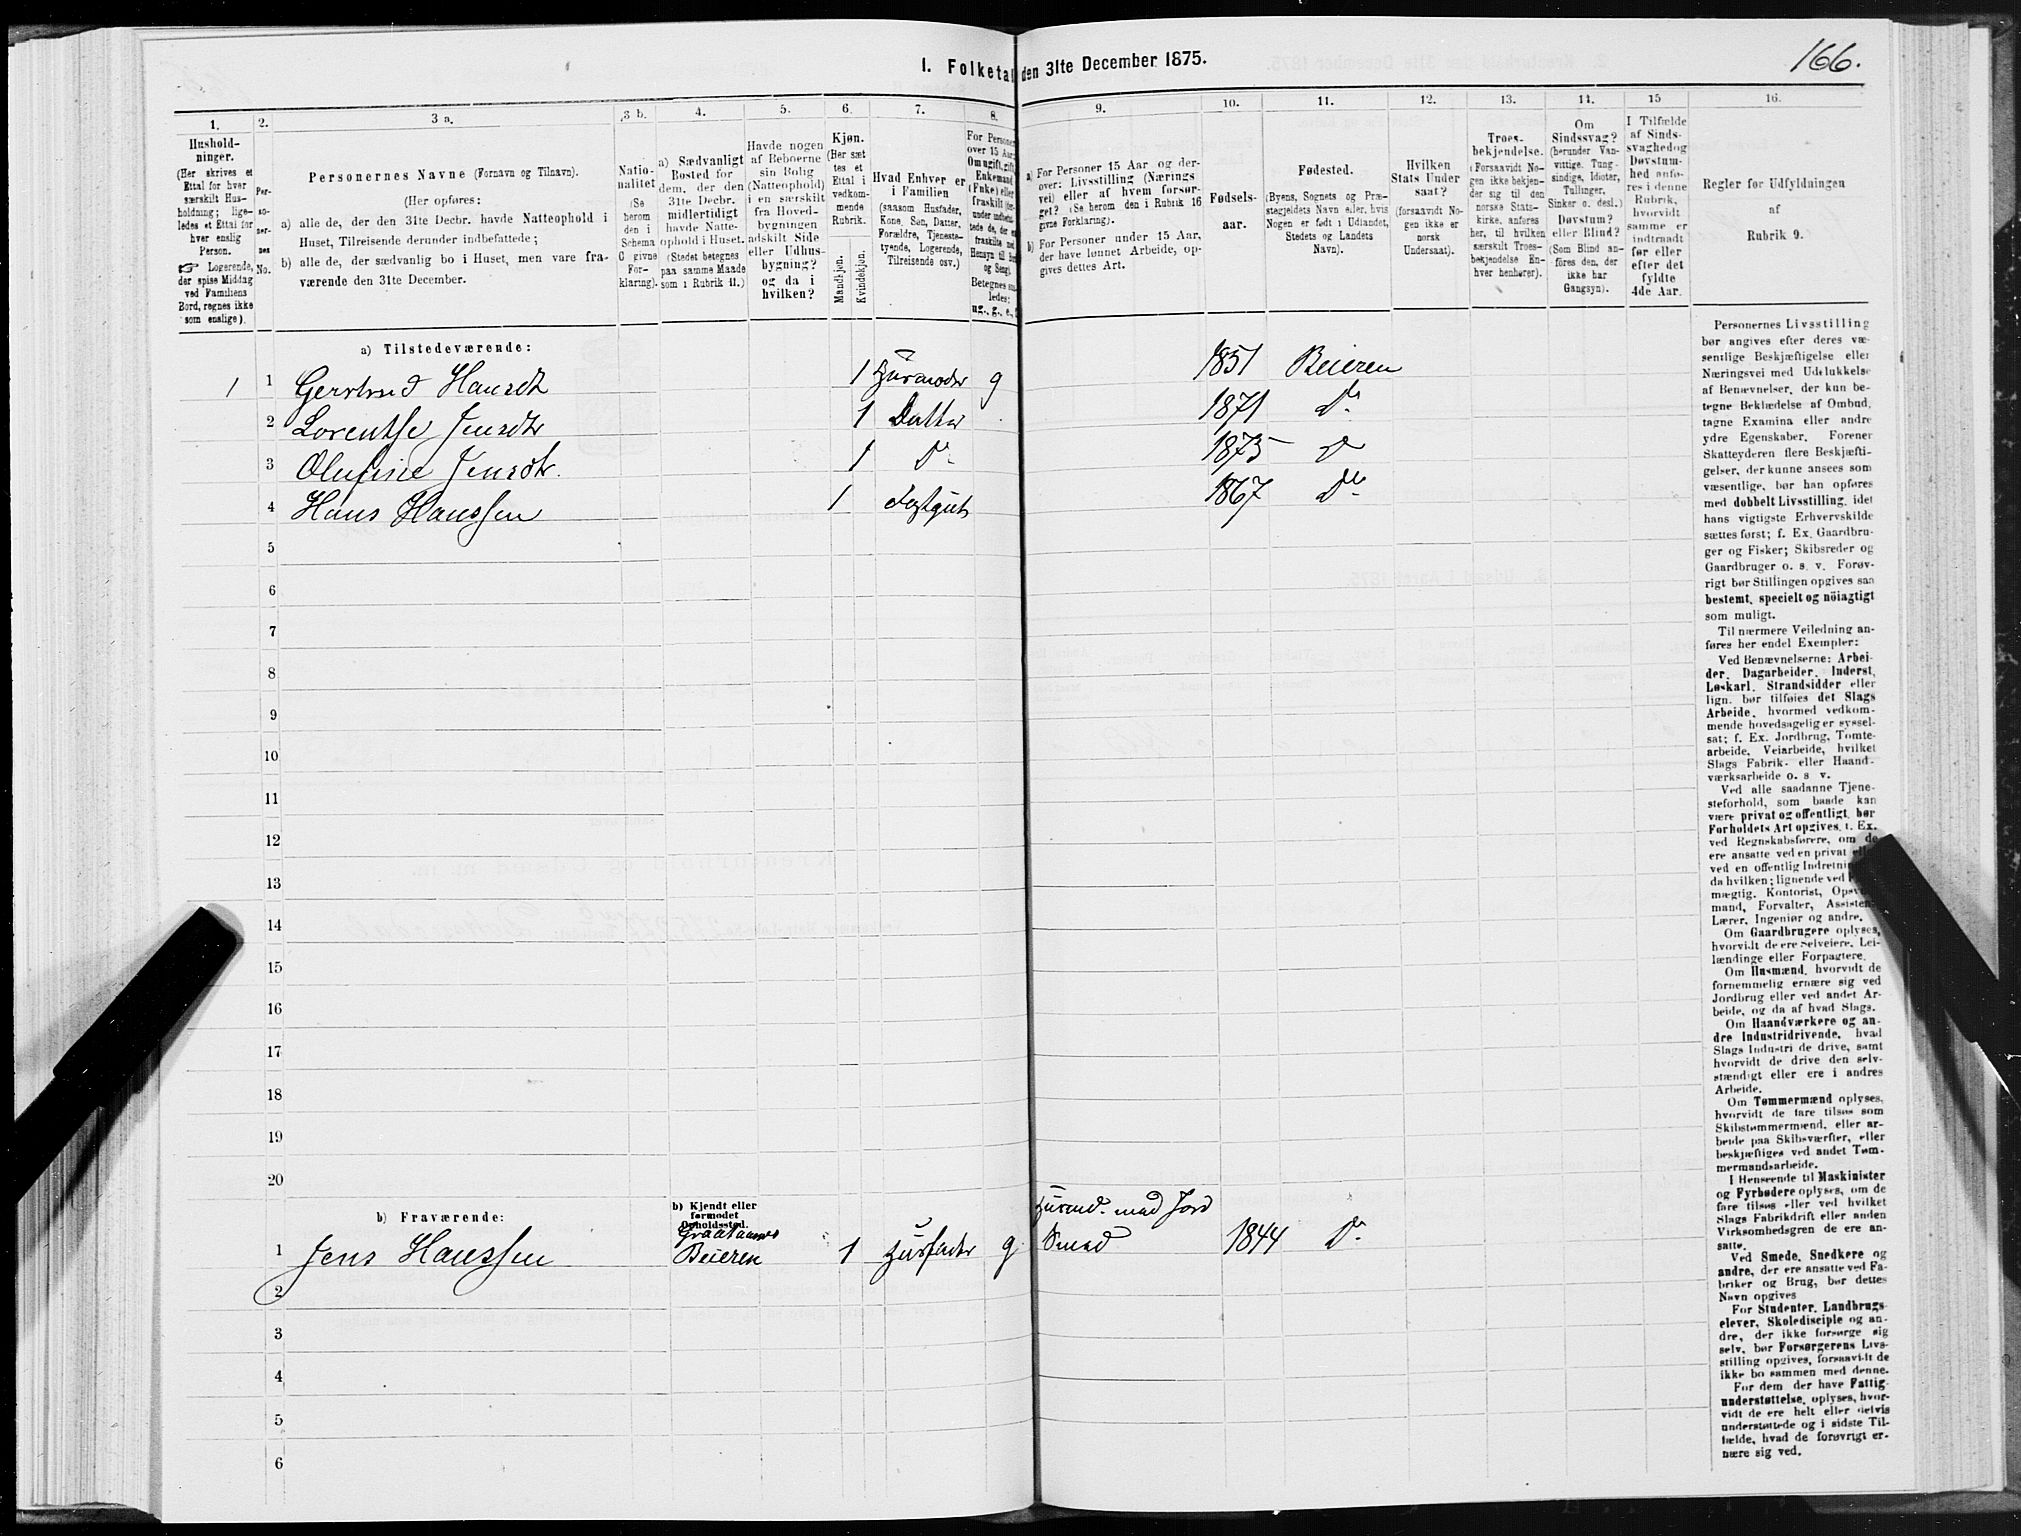 166.
I. Folketal den 31te December 1875.
1.
Hushold-
ninger.
(Her skrives et
Ettal for hver
særskilt Hus-
holdning; lige-
ledes et Ettal for
hver enslig
Person.
☞ Logerende,
der spise Middag
ved Familiens
Bord, regnes ikke
som enslige).
2.
Per-
so-
ner-
nes
No.
3 a.
Personernes Navne (Fornavn og Tilnavn).
(Her opføres:
a) alle de, der den 31te Decbr. havde Natteophold i
Huset, Tilreisende derunder indbefattede;
b) alle de, der sædvanlig bo i Huset, men vare fra-
værende den 31te December.
3 b.
Natio-
nalitet
(Se
herom
den i
Schema
C givne
For-
klaring).
4.
a) Sædvanligt
Bosted for
dem, der den
31te Decbr.
midlertidigt
havde Natte-
ophold i Huset.
(Stedet betegnes
paa samme Maade
som i Rubrik 11.)
5.
Havde nogen
af Beboerne
sin Bolig
(Natteophold)
i en særskilt
fra Hoved-
bygningen
adskilt Side
eller Udhus-
bygning?
og da i
hvilken?
6.
Kjøn.
(Her sæt
tes et
Ettal i
vedkom-
mende
Rubrik.
Mandkjøn.
Kvindekjøn.
7.
Hvad Enhver er
i Familien
(saasom Husfader,
Kone, Søn, Datter,
Forældre, Tjeneste-
tyende, Logerende,
Tilreisende osv.)
8.
For Personer
over 15 Aar:
Om ugift, gift,
Enkemand
(Enke) eller
fraskilt
Betegnes saa-
ledes:
ug., g., e.,
9.
a) For Personer 15 Aar og der-
over: Livsstilling (Nærings
vei) eller af hvem forsør-
get? (Se herom den i Rubrik 16
givne Forklaring).
b) For Personer under 15 Aar,
der have lønnet Arbeide, op-
gives dettes Art.
10.
Fødsels-
aar.
11.
Fødested.
(Byens, Sognets og Præ-
stegjeldets Navn eller, hvis
Nogen er født i Udlandet,
Stedets og Landets
Navn).
12.
Hvilken
Stats Under
saat?
(forsaavidt No-
gen ikke er
norsk
Undersaat).
13.
Troes-
bekjendelse.
(Forsaavidt No-
gen ikke bekjen-
der sig til den
norske Stats-
kirke, anføres
her, til hvilken
særskilt Troes-
bekjendelse En-
hver henhører).
14.
Om
Sindssvag?
(herunder Van-
vittige, Tung-
sindige, Idioter,
Tullinger,
Sinker o. desl.)
Døvstum?
eller Blind?
(Som Blind an-
føres den, der
ikke har
Gangsyn).
15
I Tilfælde
af Sinds-
svaghed og
Døvstum-
hed anfø-
res i denne
Rubrik,
hvorvidt
samme er
indtraadt
før eller
efter det
fyldte
4de Aar.
16.
Regler for Udfyldningen
af
Rubrik 9.
a) Tilstedeværende:
1 1 Gertrud Hansdtr 1 Husmoder g 1851 Beieren
2 Lorentse Jensdtr 1 Datter 1871 Do
3 Olufine Jensdtr. 1 Do 1875 Do
4 Hans Hanssen 1 1867 Do
5
6
7
8
9
10
11
12
13
14
15
16
17
18
19
20
b) Fraværende:
b) Kjendt eller
formodet
Opholdssted.
Husmd. med Jord
1 Jens Hanssen Beieren 1 Husfader g Smed 1844 Do
2
3
4
5
6
Personernes Livsstilling
bør angives efter deres væ-
sentlige Beskjæftigelse eller
Næringsvei med Udelukkelse
af Benævnelser, der kun be-
tegne Beklædelse af Ombud,
tagne Examina eller andre
ydre Egenskaber. Forener
Skatteyderen flere Beskjæfti-
gelser, der kunne ansees som
væsentlige, bør han opføres
med dobbelt Livsstilling, idet
hans vigtigste Erhvervskilde
sættes først; f. Ex. Gaardbru-
ger og Fisker; Skibsreder og
Gaardbruger o. s. v. Forøv-
rigt bør Stillingen opgives saa
bestemt, specielt og nöiagtigt
som muligt.
Til nærmere Veiledning an-
føres her endel Exempler:
Ved Benævnelserne: Arbei-
der, Dagarbeider, Inderst,
Løskarl, Strandsidder eller
lign. bør tilføies det Slags
Arbeide, hvormed vedkom-
mende hovedsagelig er syssel-
sat; f. Ex. Jordbrug, Tomte-
arbeide, Veiarbeide, hvilket
Slags Fabrik- eller Haand-
værksarbeide o. s v.
Ved alle saadanne Tjene-
steforhold, som baade kan
være privat og offentligt, bør
Forholdets Art opgives, t. Ex.
ved Regnskabsførere, om de
ere ansatte ved en privat
ved en offentlig Indretning
da hvilken; lignende ved
mægtig, Kontorist,
mand, Forvalter,
Lærer, Ingeniør og andre.
Om Gaardbrugere oplyses,
hvorvidt de ere Selveiere, Lei-
lændinge eller Forpagtere.
Om Husmænd, hvorvidt de
fornemmelig ernære sig ved
Jordbrug eller ved andet Ar-
beide, og da af hvad Slags.
Om Haandværkere og an-
dre Industridrivende, hvad
Slags Industri de drive, samt
hvorvidt de drive den selv-
stændigt eller ere i andres
Arbeide.
Om Tømmermænd oplyses,
hvorvidt de fare tilsøs som
Skibstømmermænd, eller ar-
beide paa Skibsværfter, eller
beskjæftiges ved andet Tøm-
mermandsarbeide.
I Henseende til Maskinister
og Fyrbødere oplyses, om de
fare tilsøs eller ved hvilket
Slags Fabrikdrift eller anden
Virksomhedsgren de ere an-
satte.
Ved Smede, Snedkere og
andre, der ere ansatte ved Fa-
briker og Brug, bør dettes
Navn opgives
For Studenter, Landbrugs-
elever, Skoledisciple og an-
dre, der ikke forsørge sig
selv, bør Forsørgerens Livs-
stilling opgives, forsaavidt de
ikke bo sammen med denne.
For dem der have Fattig-
understøttelse, oplyses, hvor-
vidt de ere helt eller delvis
understøttede og i sidste Til-
fælde, hvad de forøvrigt er-
nære sig ved.